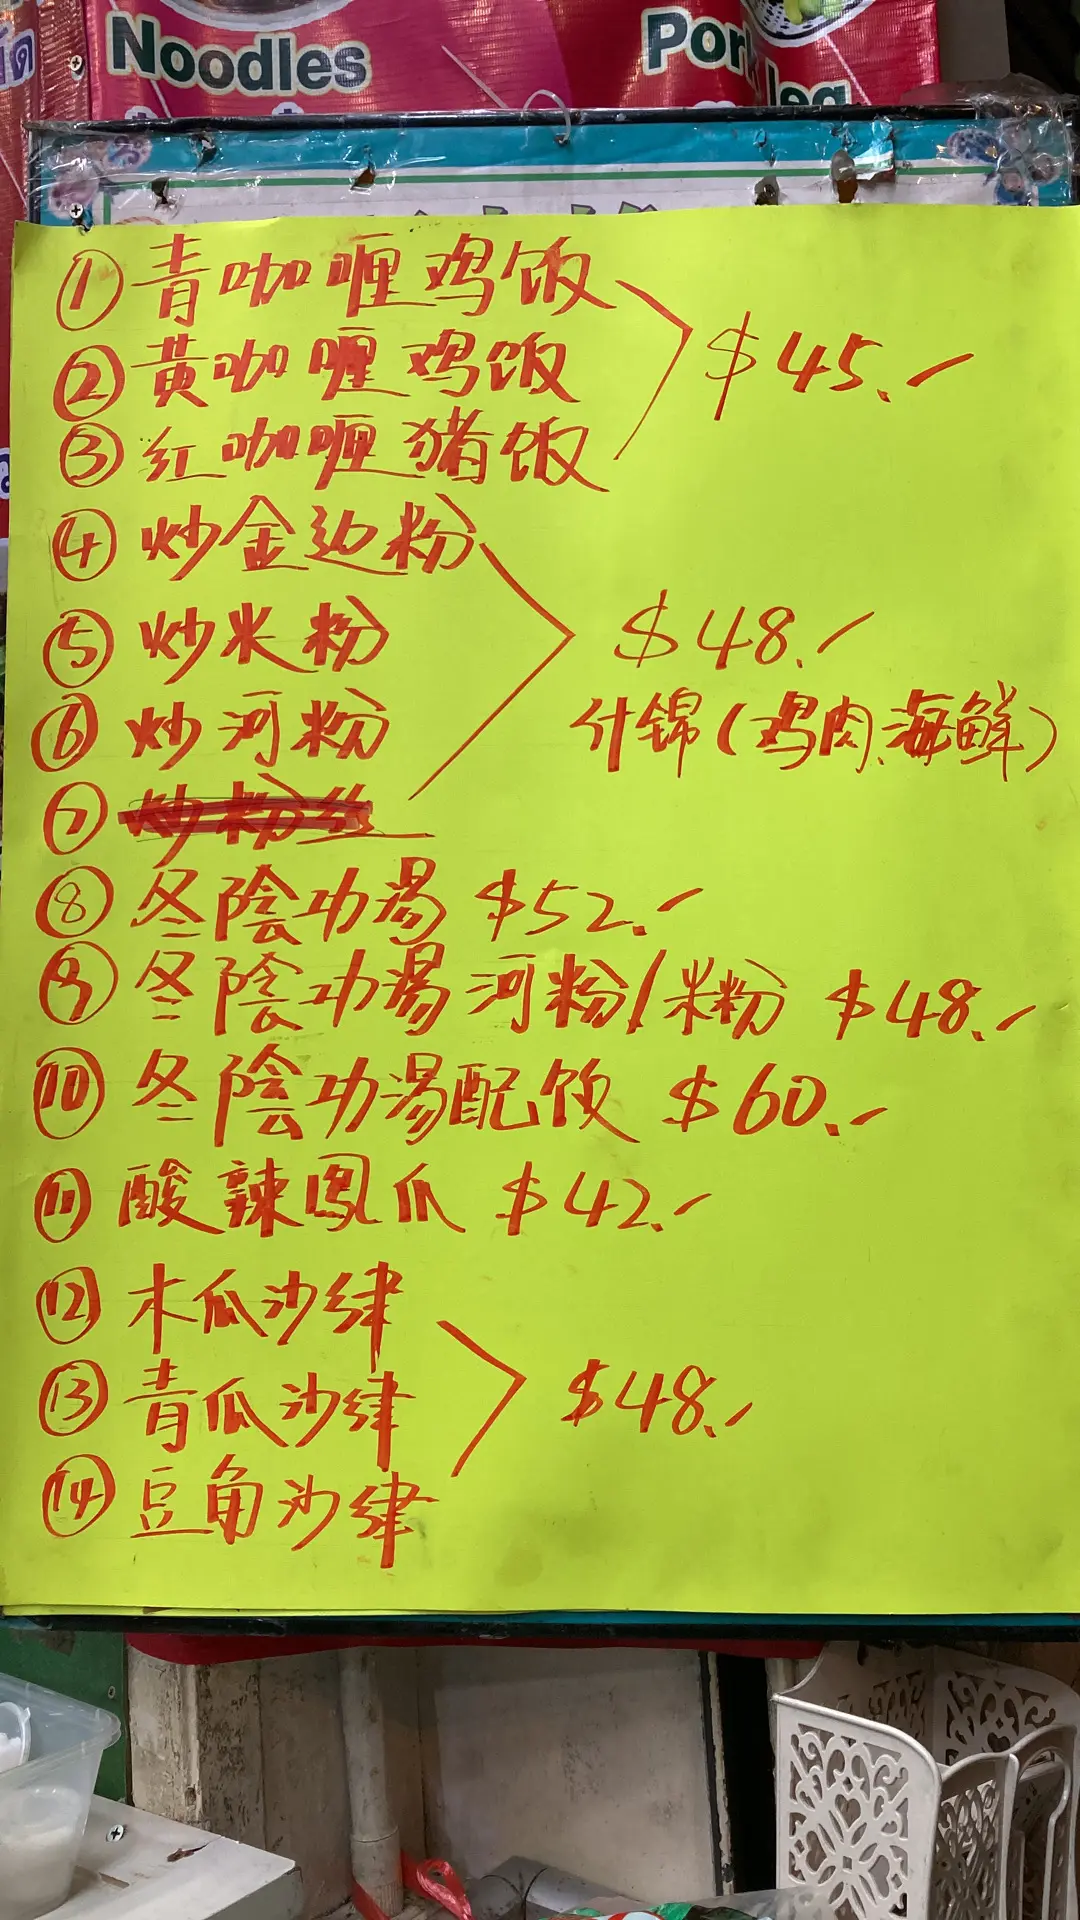 Noodles
Pork leg
① 青咖喱鸡饭
② 黄咖喱鸡饭
$45.-
③ 红咖喱猪饭
④ 炒金边粉
⑤ 炒米粉
$48.-
⑥ 炒河粉
什锦(鸡肉、海鲜)
⑦ 炒粉丝
⑧ 冬陰功湯 $52.-
⑨ 冬陰功湯河粉/米粉 $48.-
⑩ 冬陰功湯配饭 $60.-
⑪ 酸辣凤爪 $42.-
⑫ 木瓜沙律
⑬ 青瓜沙律
$48.-
⑭ 豆角沙律